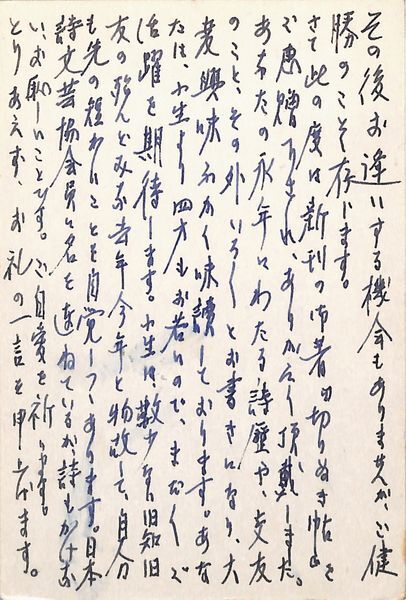 その後お逢いする機会もありませんが、ご健
勝のこと存じます。
さて此の度は新刊の御著「切りぬき帖」を
ご恵贈下され、ありがたく頂戴しました。
あなたの永年にわたる詩歴や、交友
のこと、その外いろいろとお書きになり、大
変興味ふかく味讀しております。あな
たは、小生より四才もお若いので、まだまだご
活躍を期待します。小生は数少ない旧知旧
友の殆んどみな去年今年と物故して、自分
も先の短かいことを自覚しつつあります。日本
詩文芸協会員に名を連ねているが、詩もかけな
い、お恥しいことです。ご自愛を祈ります。
とりあえず、お礼の一言を申上げます。